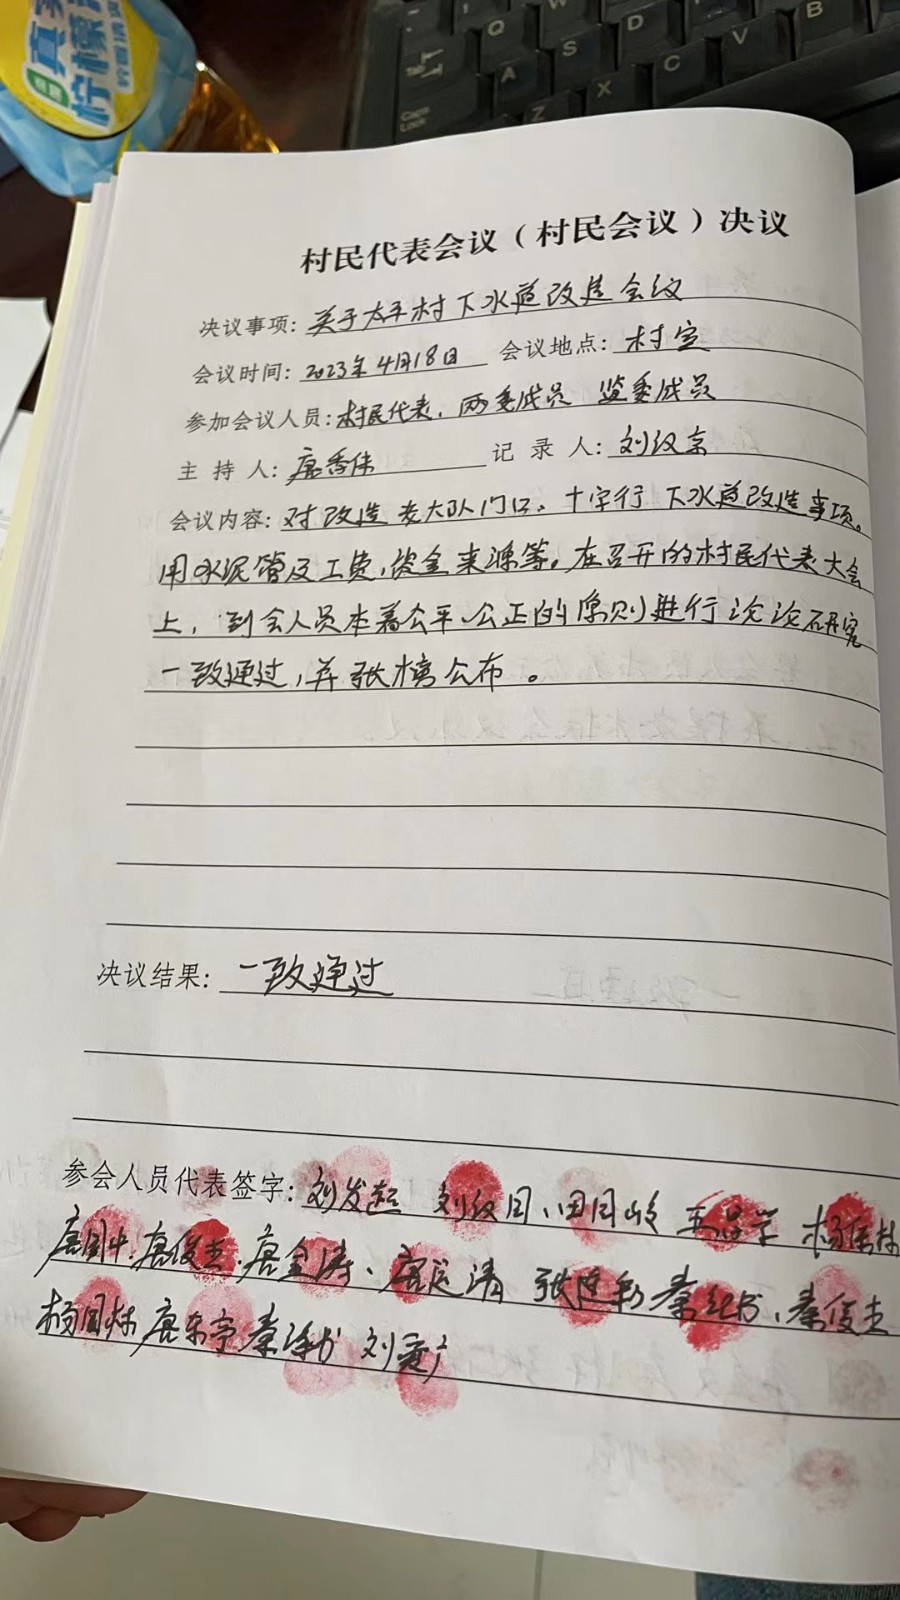 真
柠檬
Q
W
A
S
D
F
Z
X
C
V
B
Caps Lock
村民代表会议（村民会议）决议
决议事项：关于太平村下水道改造会议
会议时间：2023年4月18日 会议地点：村室
参加会议人员：村民代表、两委成员 监委成员
主持人：唐香伟 记录人：刘汉京
会议内容：对改造老大队门口、十字行下水道改造事项。
用水泥管及工费，资金来源等。在召开的村民代表大会
上，到会人员本着公平、公正的原则进行论论研究
一致通过，并张榜公布。
决议结果：一致通过
参会人员代表签字：刘发起 刘汉国、田国岭 杨保林
唐俊杰、唐金涛、张廷彩 秦俊杰
杨国林 唐东亭